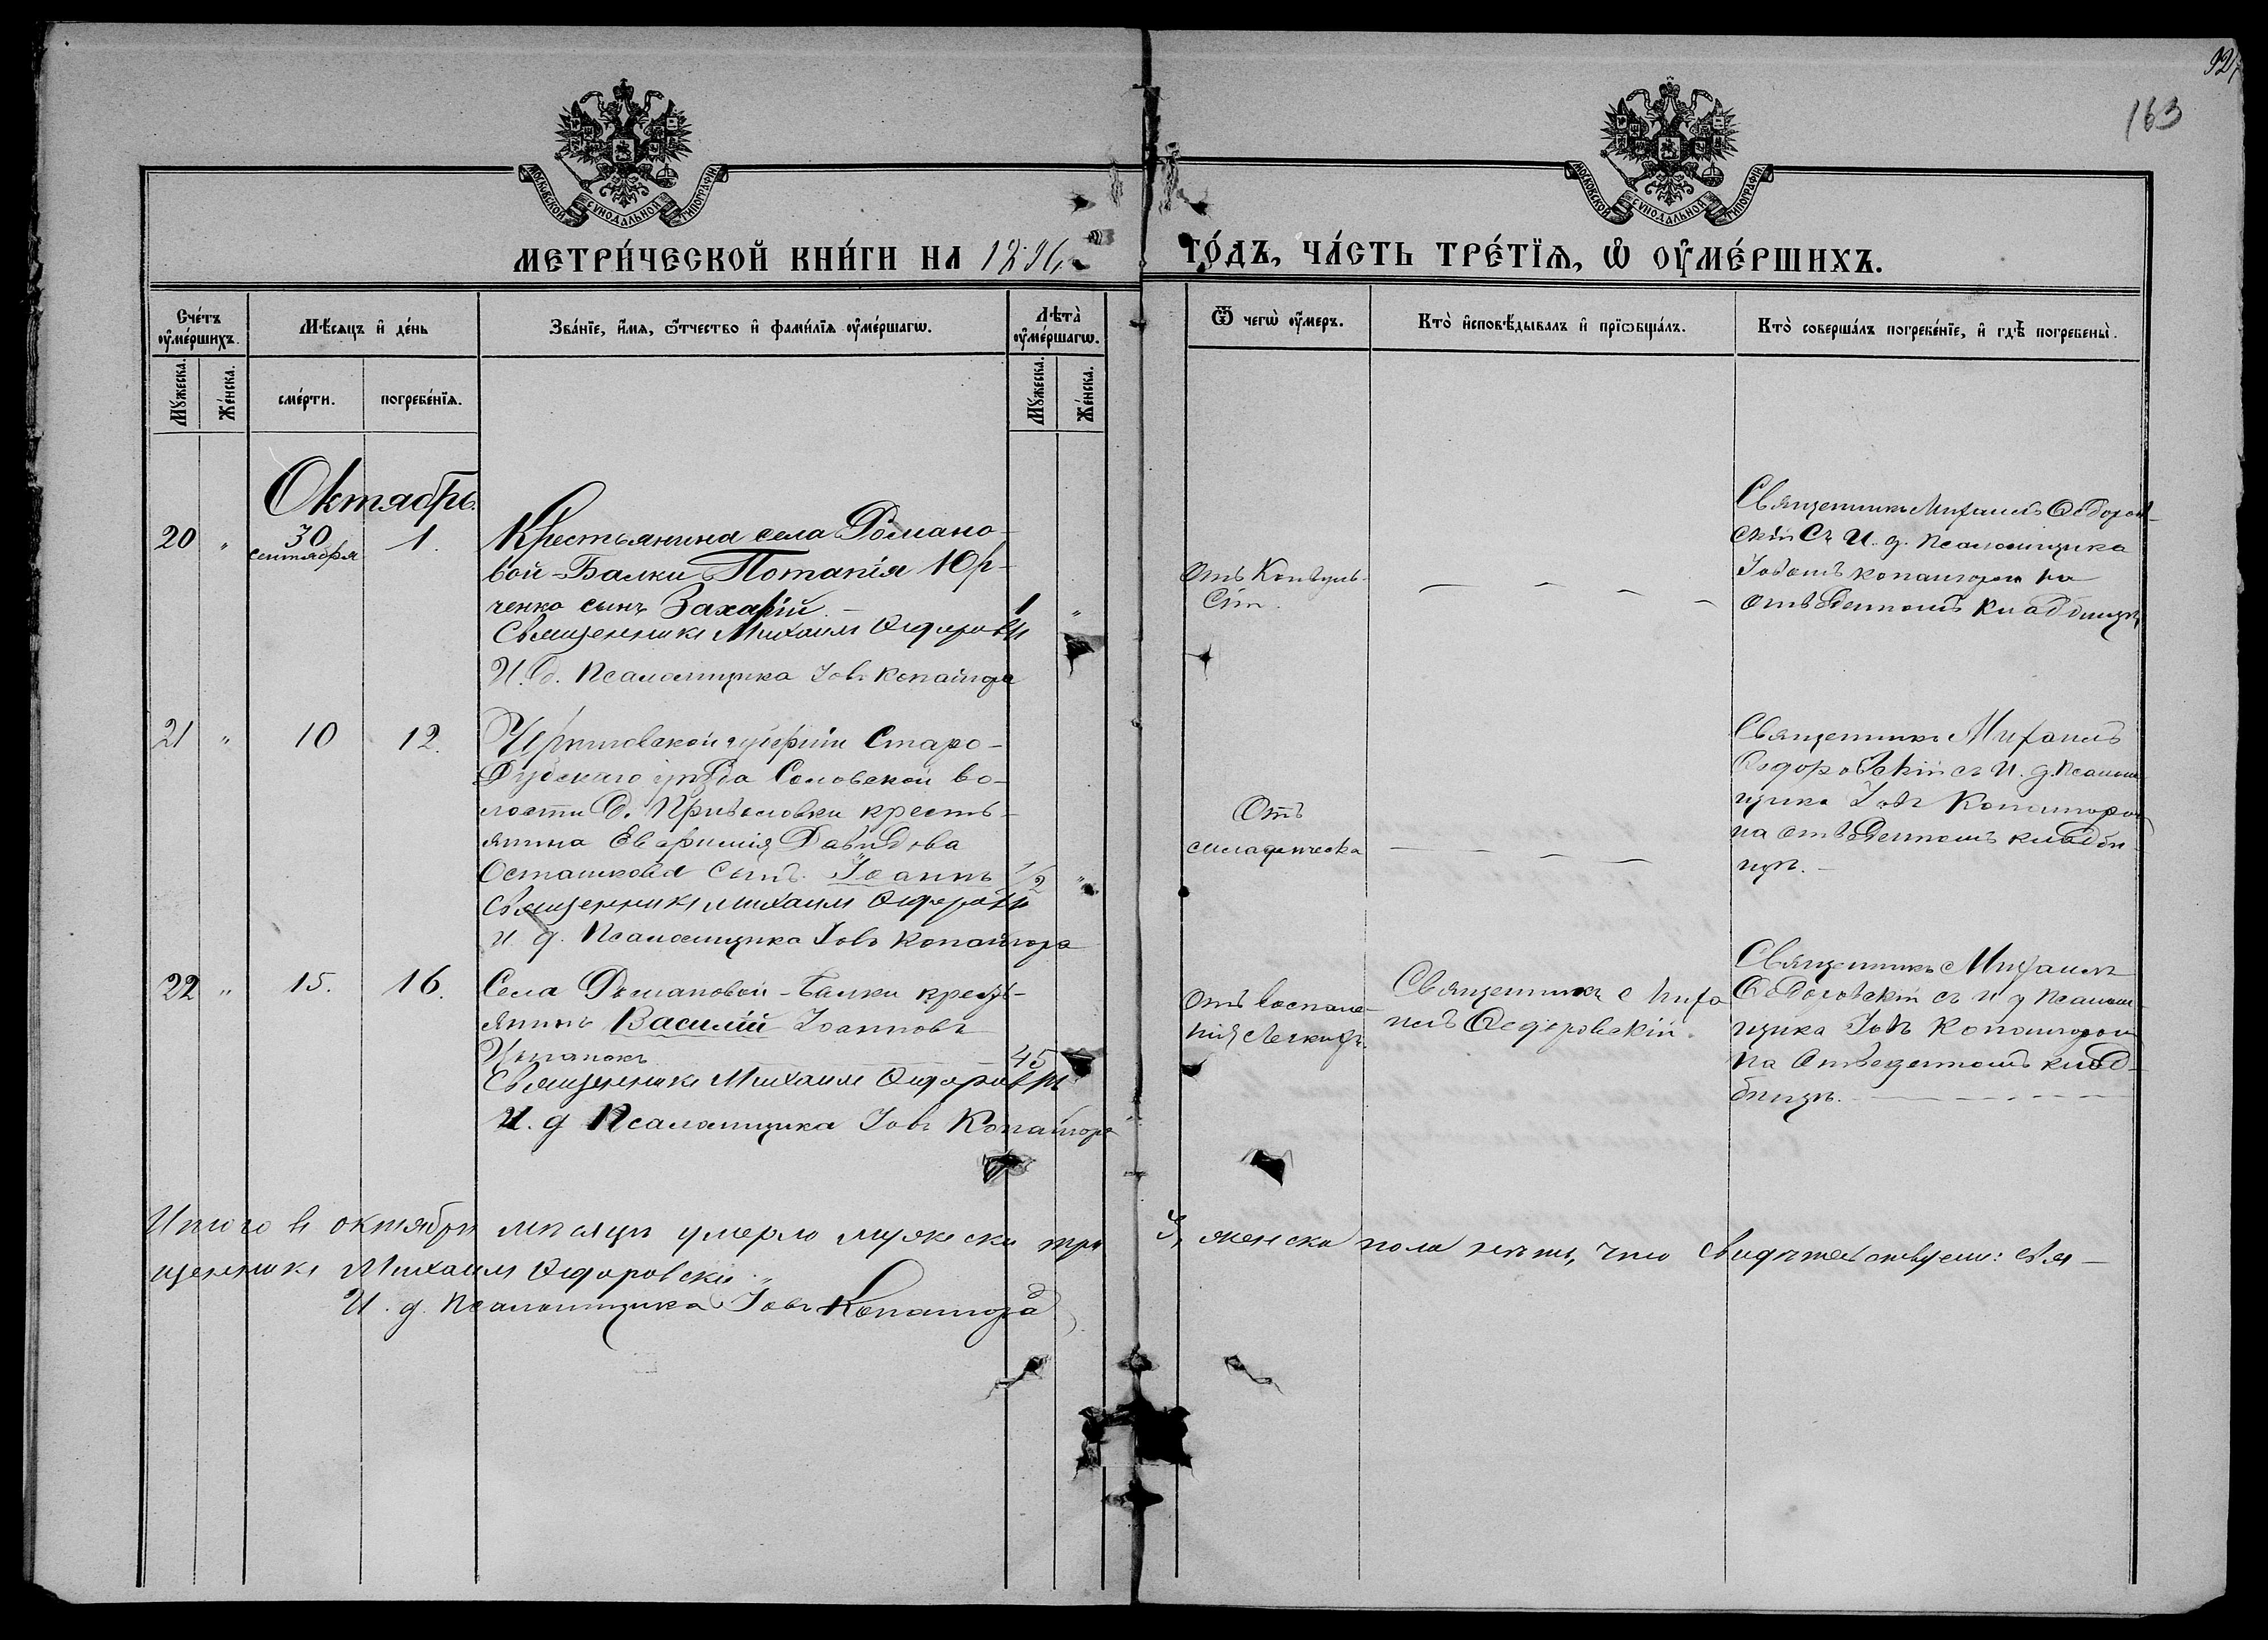 92
163
МОСКОВСКОЙ СУНОДАЛЬНОЙ ТИПОГРАФІИ
МОСКОВСКОЙ СУНОДАЛЬНОЙ ТИПОГРАФІИ
МЕТРИ́ЧЕСКОЙ КНИ́ГИ НА 1896
ГО́ДЪ, ЧА́СТЬ ТРЕ́ТІЯ, Ѡ҆ ОУ҆МЕ́РШИХЪ.
Сче́тъ оу҆ме́ршихъ.
Мѣ́сяцъ и҆ де́нь
Зва́нїе, и҆́мя, ѻ҆́тчество и҆ фами́лїя оу҆ме́ршагѡ.
Лѣта̀ оу҆ме́ршагѡ.
Ѿ чегѡ̀ оу҆́меръ.
Кто̀ и҆сповѣ́дывалъ и҆ прїѡбща́лъ.
Кто̀ соверша́лъ погребе́нїе, и҆ гдѣ̀ погребены̀.
Му́жеска.
Же́нска.
сме́рти.
погребе́нїя.
Му́жеска.
Же́нска.
Октябрь.
20 " 30 сентября 1.
Крестьянина села Романо-
вой-Балки Потапія Юр-
ченко сынъ Захарій. 1 "
Священникъ Михаилъ Ѳедоровскій
И. д. Псаломщика Іовъ Копайгора
Отъ Конвуль-
сіи.
Священникъ Михаилъ Ѳедоров-
скій съ И. д. Псаломщика
Іовомъ Копайгорой на
отведенномъ кладбищѣ
21 " 10 12.
Черниговской губерніи Старо-
Дубскаго уѣзда Соловской во-
лости д. крестъ-
янина Евфимія Давидова
Осташкова сынъ Іоаннъ 1/2 "
Священникъ Михаилъ Ѳедоровскій
и. д. Псаломщика Іовъ Копайгора
Отъ
младенческа
Священникъ Михаилъ
Ѳедоровскій съ И. д. Псалом-
щика Іовъ Копайгорой
на отведенномъ кладби-
щѣ.
22 " 15. 16.
Села Романовой-Балки крестъ-
янинъ Василій Іоанновъ
45
Священникъ Михаилъ Ѳедоровскій
И. д Псаломщика Іовъ Копайгора
Отъ воспале-
нія легкихъ.
Священникъ Миха
илъ Ѳедоровскій.
Священникъ Михаилъ
Ѳедоровскій съ и д Псалом-
щика Іовъ Копайгорой
на отведенномъ клад-
бищѣ.
Итого въ октябрѣ мѣсяцѣ умерло мужска три 3, женска пола нѣтъ, что свидѣтельствуемъ: свя-
щенникъ Михаилъ Ѳедоровскій
И. д. Псаломщика Іовъ Копайгора